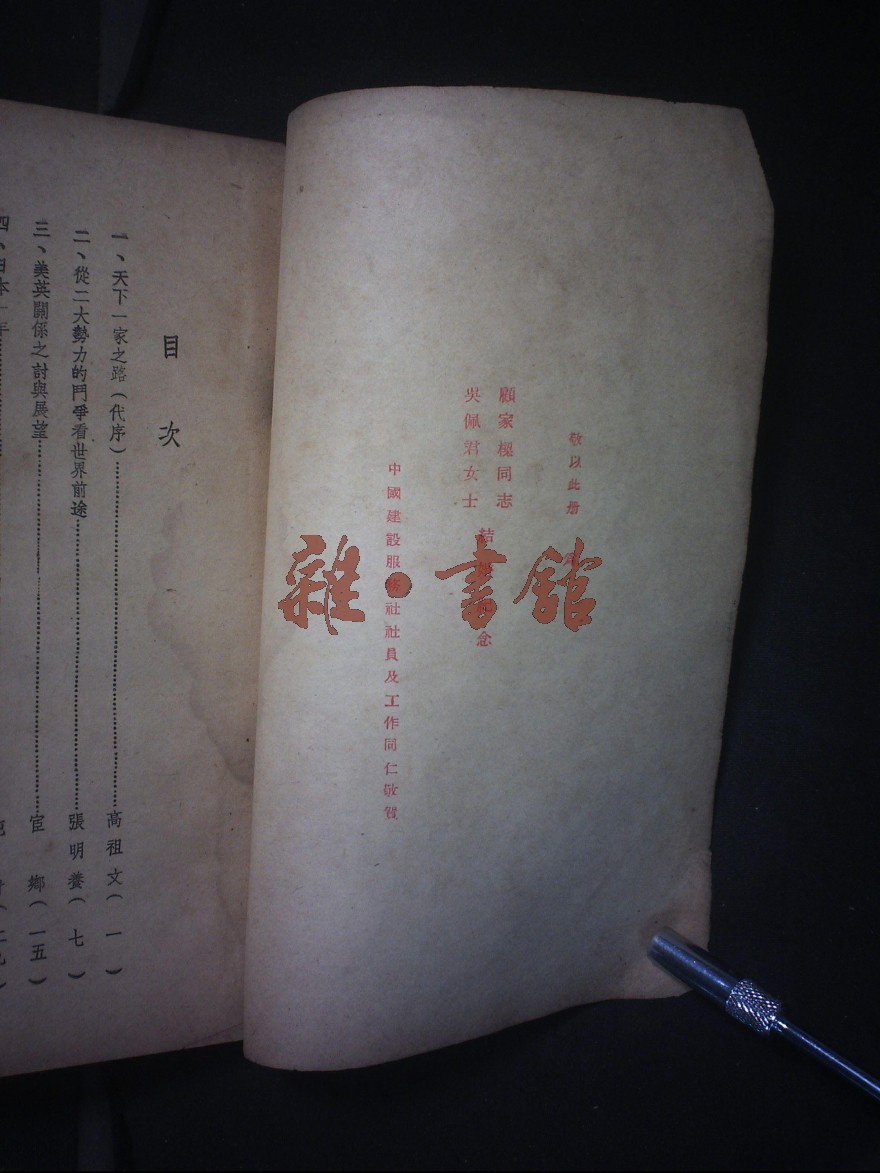 敬以此册
顧家楔同志
吳佩君女士
結 念
中國建設服 社社員及工作同仁敬賀
雜•書館
目次
一、天下一家之路(代序)……高祖文(一)
二、從二大勢力的鬥爭看世界前途……張明養(七)
三、美英關係之討與展望……宦鄉(一五)
四、日本一年……